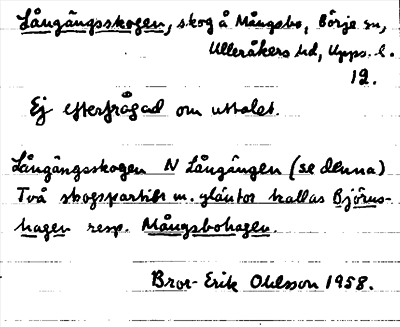 Långängsskogen, skog å Mångsbo, Börje sn,
Ulleråkers hd, Upps. l.
12.
Ej efterfrågad om uttalet.
Långängsskogen N Långängen (se denna)
Två skogspartier m. gläntor kallas Björus-
hagen resp. Mångsbohagen.
Bror-Erik Ohlsson 1958.